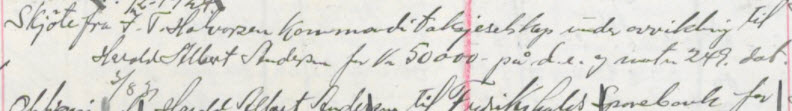 Skjøte fra F. T. Halvorsen Kommanditaksjeselskap under avvikling til
Harald Albert Andersen for kr 50000.- på d.e. g matr. 249. dat.
3/8 37
Harald Albert Andersen til Fredrikshalds Sparebank for